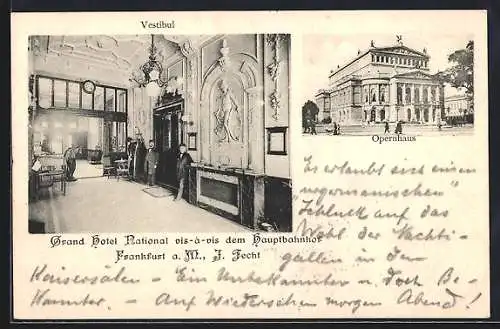 Vestibul
Opernhaus
Grand Hotel National vis-à-vis dem Hauptbahnhof
Frankfurt a. M., J. Fecht
Es erlaubt sich einen
"urgermanischen"
Schluck auf das
Wohl der Nachti-
gallen in den
Kaisersälen - Ein Unbekannter u. doch Be-
kannter. - Auf Wiedersehen morgen Abend!